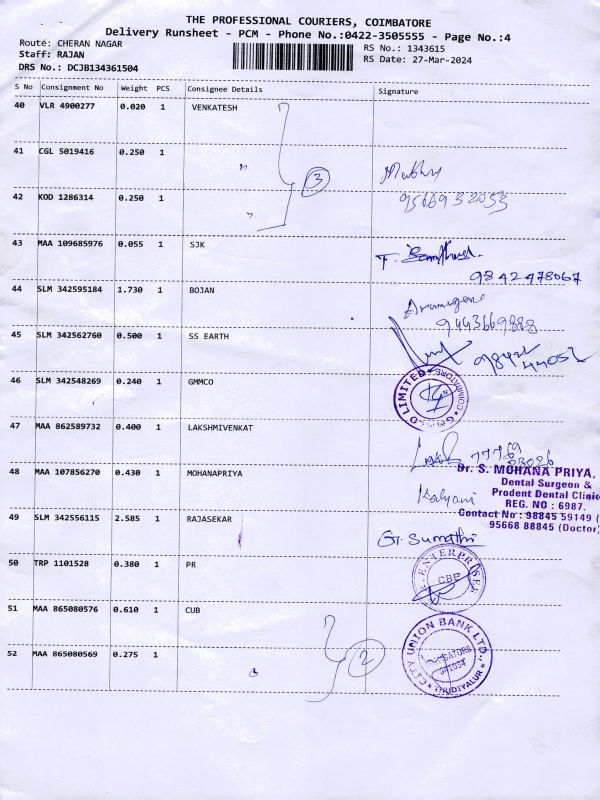 THE PROFESSIONAL COURIERS, COIMBATORE
Delivery Runsheet - PCM - Phone No.:0422-3505555 - Page No.:4
Route: CHERAN NAGAR
RS No.: 1343615
Staff: RAJAN
RS Date: 27-Mar-2024
DRS No.: DCJB134361504
S No Consignment No Weight PCS Consignee Details Signature
40 VLR 4900277 0.020 1 VENKATESH
41 CGL 5019416 0.250 1 "
3
42 KOD 1286314 0.250 1 "
43 MAA 109685976 0.055 1 SJK
9842478067
44 SLM 342595184 1.730 1 BOJAN
9443669888
45 SLM 342562760 0.500 1 SS EARTH
46 SLM 342548269 0.240 1 GMMCO
GMMCO LIMITED COIMBATORE
47 MAA 862589732 0.400 1 LAKSHMIVENKAT
48 MAA 107856270 0.430 1 MOHANAPRIYA Kalyani
Dr. S. MOHANA PRIYA,
Dental Surgeon &
Prodent Dental Clinic
REG. NO : 6987.
Contact No : 98845 59149 (
95668 88845 (Doctor)
49 SLM 342556115 2.585 1 RAJASEKAR G. Sumathi
50 TRP 1101528 0.380 1 PR
ENTERPRISES
CBE
51 MAA 865080576 0.610 1 CUB
CITY UNION BANK LTD.,
THUDIYALUR
2
52 MAA 865080569 0.275 1